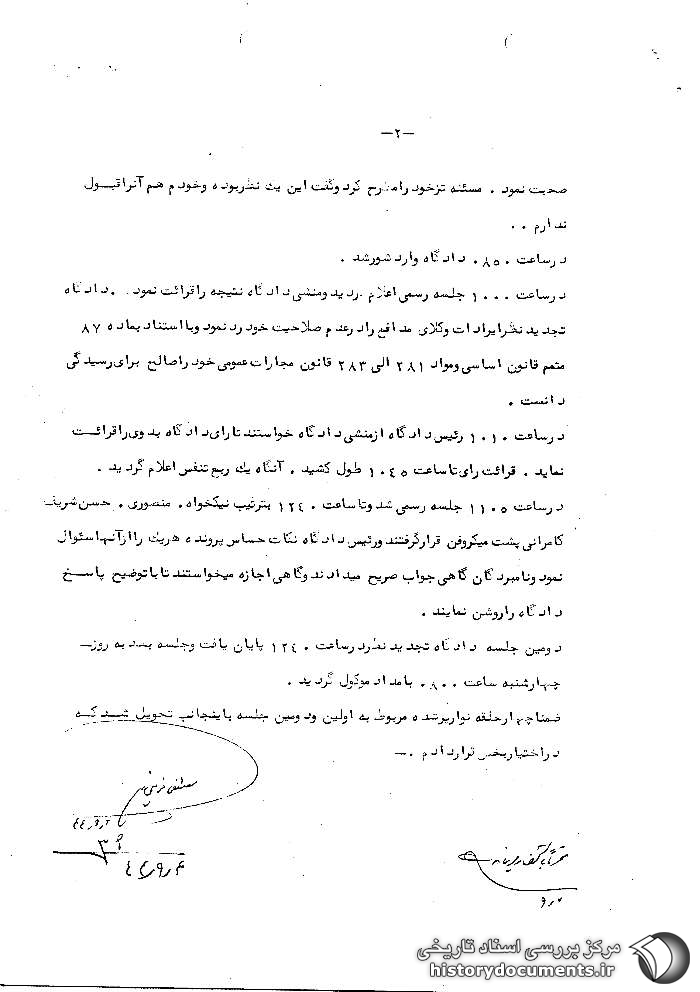 -۲-
صحبت نمود . مسئله تزخود رامطرح کرد وگفت این یك نظربوده وخودم هم آنراقبول
ندارم . .
درساعت ۸۵۰ دادگاه واردشورشد .
درساعت ۱۰۰۰ جلسه رسمی اعلام گردید ومنشی دادگاه نتیجه راقرائت نمود . دادگاه
تجدید نظرایرادات وکلای مدافع رادرعدم صلاحیت خود رد نمود وبا استناد بماده ۸۷
متمم قانون اساسی ومواد ۲۸۱ الی ۲۸۳ قانون مجازات عمومی خود راصالح برای رسیدگی
دانست .
درساعت ۱۰۱۰ رئیس دادگاه ازمنشی دادگاه خواستند تارای دادگاه بدوی راقرائت
نماید . قرائت رای تاساعت ۱۰٤۵ طول کشید . آنگاه یك ربع تنفس اعلام گردید .
درساعت ۱۱۰۵ جلسه رسمی شد وتاساعت ۱۲٤۰ بترتیب نیکخواه . منصوری . حسن شریف
کامرانی پشت میکروفن قرارگرفتند ورئیس دادگاه نکات حساس پرونده هریك راازآنها سئوال
نمود ونامبردگان گاهی جواب صریح میدادند وگاهی اجازه میخواستند تاباتوضیح پاسخ
دادگاه راروشن نمایند .
دومین جلسه دادگاه تجدید نظردرساعت ۱۲٤۰ پایان یافت وجلسه بعد به روز-
چهارشنبه ساعت ۸۰۰ بامداد موکول گردید .
ضمنا چهارحلقه نوارپرشده مربوط به اولین ودومین جلسه باینجانب تحویل شد که
دراختیاربخش قراردادم .-
مرکز بررسی اسناد تاریخی
historydocuments.ir